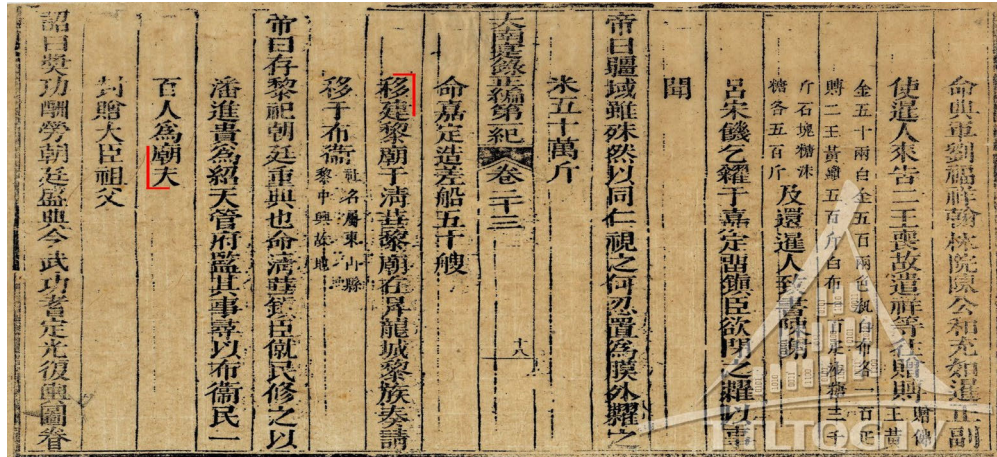 命典軍劉福祥翰林院陳公和充如暹正副
使暹人來告二王喪故遣祥等往賵則贈佛王黃
金五十兩白金五百兩色紈白布各一百疋
賻二王黃蠟五百斤白布一百疋砂糖三千
斤石塊糖沫
糖各五百斤
及還暹人致書陳謝
呂宋饑乞糴于嘉定留鎮臣欲閉之糴以事
聞
帝曰疆域雖殊然以同仁視之何忍置為膜外糶之
大南寔錄正編第一紀 卷二十三 十八
米五十萬斤
命嘉定造差船五十艘
移建黎廟于清葩黎廟在昇龍城黎族奏請
移于布衞
社名屬東山縣
黎中興故地
帝曰存黎祀朝廷重典也命清葩鎮臣僦民修之以
潘進貴為紹天管府監其事尋以布衞民一
百人為廟夫
封贈大臣祖父
詔曰奬功酬勞朝廷盛典今武功耆定光復輿圖眷
TTLTQGIV